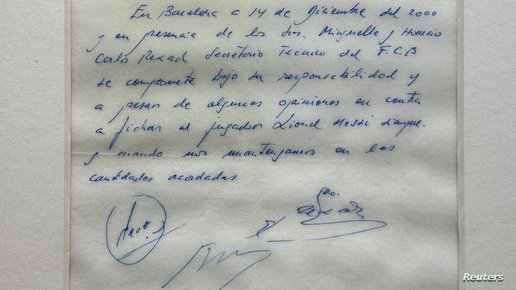 En Barcelona a 14 de Diciembre del 2000
y en presencia de los Sres. Minguella y Horacio
Carles Rexach Secretario Tecnico del F.C.B
se compromete bajo su responsabilidad y
a pesar de algunas opiniones en contra
a fichar al jugador Lionel Messi siempre
y cuando nos mantengamos en las
cantidades acordadas
Reuters